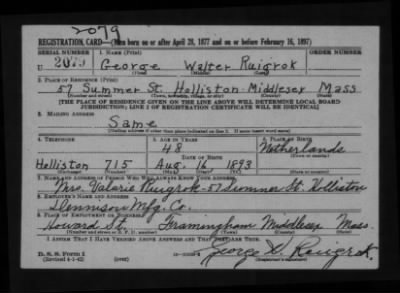 2079
REGISTRATION CARD—(Men born on or after April 28, 1877 and on or before February 16, 1897)
SERIAL NUMBER 1. NAME (Print) ORDER NUMBER
U 2079 George Walter Ruigrok
(First) (Middle) (Last)
2. PLACE OF RESIDENCE (Print)
57 Summer St. Holliston Middlesex Mass
(Number and street) (Town, township, village, or city) (County) (State)
[THE PLACE OF RESIDENCE GIVEN ON THE LINE ABOVE WILL DETERMINE LOCAL BOARD
JURISDICTION; LINE 2 OF REGISTRATION CERTIFICATE WILL BE IDENTICAL]
3. MAILING ADDRESS
Same
(Mailing address if other than place indicated on line 2. If same insert word same)
4. TELEPHONE 5. AGE IN YEARS 6. PLACE OF BIRTH
48 Netherlands
DATE OF BIRTH (Town or county)
Holliston 715 Aug. 16 1893
(Exchange) (Number) (Mo.) (Day) (Yr.) (State or country)
7. NAME AND ADDRESS OF PERSON WHO WILL ALWAYS KNOW YOUR ADDRESS
Mrs. Valerie Ruigrok-57 Summer St. Holliston
8. EMPLOYER'S NAME AND ADDRESS
Dennison Mfg. Co.
9. PLACE OF EMPLOYMENT OR BUSINESS
Howard St. Framingham Middlesex Mass.
(Number and street or R. F. D. number) (Town) (County) (State)
I AFFIRM THAT I HAVE VERIFIED ABOVE ANSWERS AND THAT THEY ARE TRUE.
D. S. S. Form 1
(Revised 4-1-42) (over) George W. Ruigrok
(Registrant's signature)